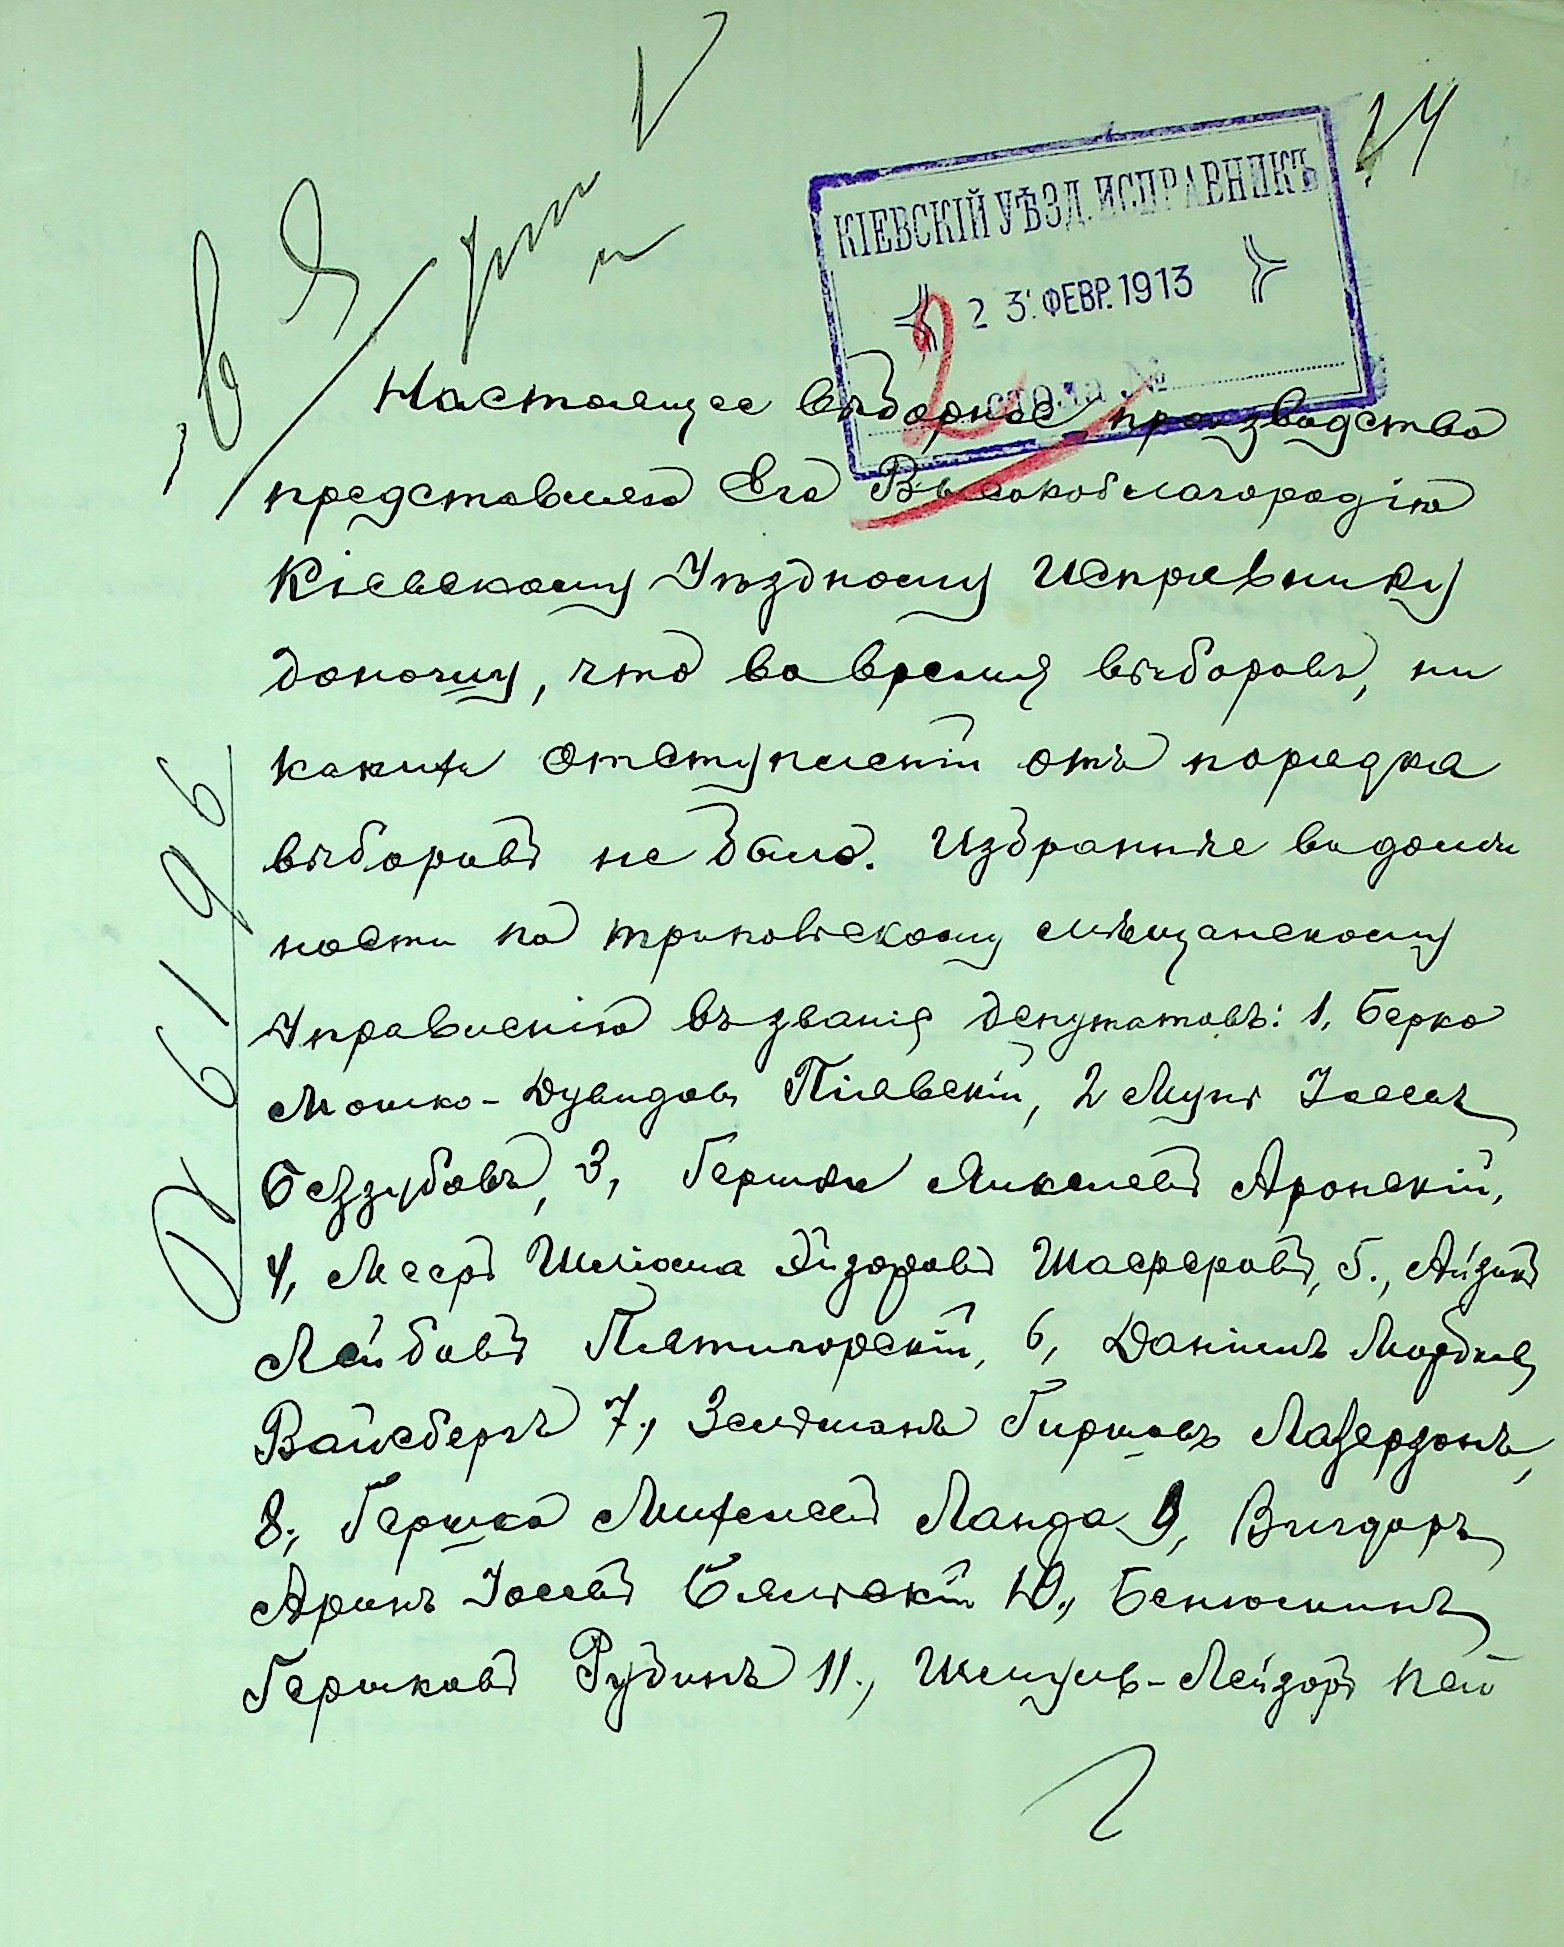 24
КІЕВСКІЙ УѢЗД. ИСПРАВНИКЪ
23. ФЕВР. 1913
стола №
2
Настоящее выборное производство
представляю Его Высокоблагородію
Кіевскому Уѣздному Исправнику
доношу, что во время выборовъ, ни
какихъ отступленій отъ порядка
выборовъ не было. Избранные
ности по трипольскому мѣщанскому
Управленію въ званія депутатовъ: 1, Берко
Мошко-Дувидовъ Пілявскій, 2 Муня Іосевъ
Беззубовъ, 3, Гершко Янкелевъ Аронскій,
4, Мееръ Шліома Шаеферовъ, 5., Айзикъ
Лейбовъ Пятигорскій, 6, Даніилъ Мордков
Вайсбергъ 7., Зельманъ Гиршовъ Лазерзонъ,
8., Гершко Михелевъ Ланда 9, Вигдоръ
Аронъ Іосевъ Бялискій 10., Бенюминъ
Гершковъ Рубинъ 11., Шмуль-Лейзоръ Пей
6196